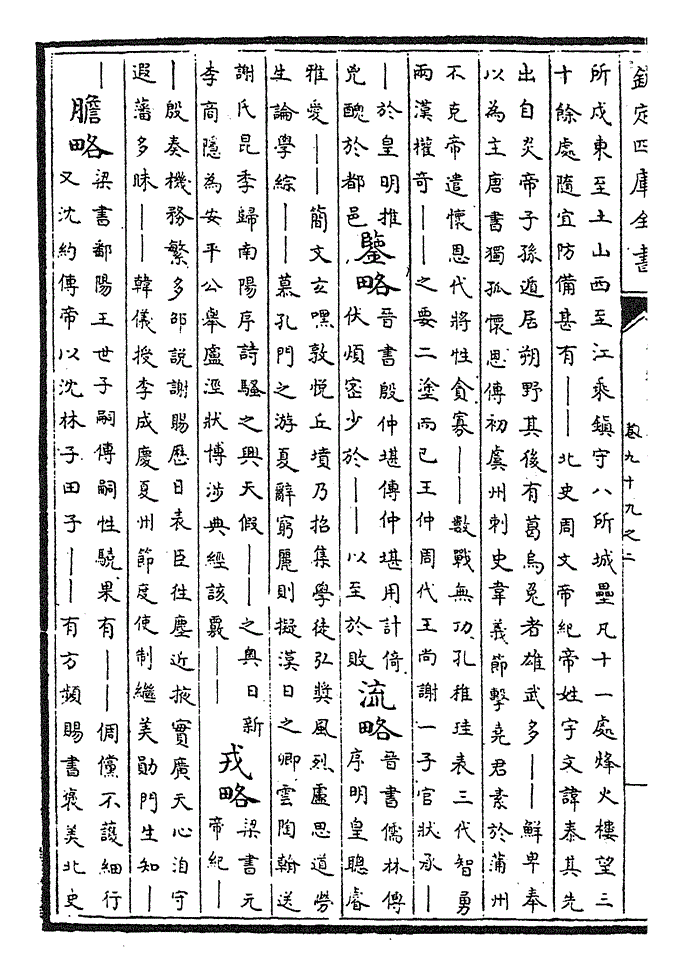 欽定四庫全書
卷九十九之二
所成東至土山西至江乘鎮守八所城壘凡十一處烽火樓望三
十餘處隨宜防備甚有——北史周文帝紀帝姓宇文諱泰其先
出自炎帝子孫遁居朔野其後有葛烏兔者雄武多——鮮卑奉
以為主唐書獨孤懷恩傳初虞州刺史韋義節擊堯君素於蒲州
不克帝遣懷恩代將性貪寡——數戰無功孔稚珪表三代智勇
兩漢權奇——之要二塗而已王仲周代王尚謝一子官狀承—
—於皇明推
兇醜於都邑
鑒略
晉書殷仲堪傳仲堪用計倚
伏煩密少於——以至於敗
流略
晉書儒林傳
序明皇聰睿
雅愛——簡文玄嘿敦悅丘墳乃招集學徒弘獎風烈盧思道勞
生論學綜——慕孔門之游夏辭窮麗則擬漢日之卿雲陶翰送
謝氏昆季歸南陽序詩騷之興天假——之奧日新
李商隱為安平公舉盧涇狀博涉典經該覈——
戎略
梁書元
帝紀——
—殷奏機務繁多邵說謝賜曆日表臣往塵近掖實廣天心洎守
遐藩多昧——韓儀授李成慶夏州節度使制繼美勛門生知—
—
膽略
梁書鄱陽王世子嗣傳嗣性驍果有——倜儻不護細行
又沈約傳帝以沈林子田子——有方頻賜書褒美北史